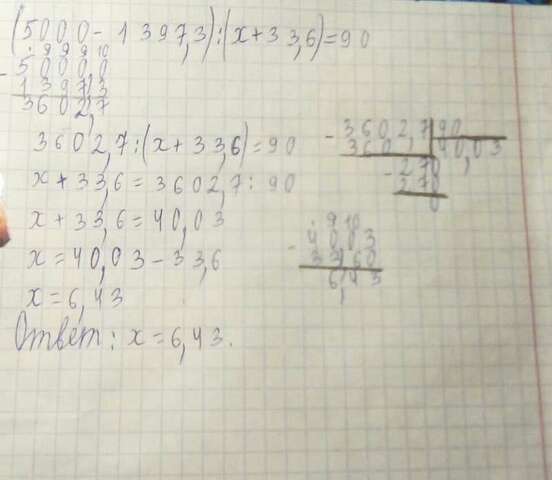 (5000-1397,3):(x+33,6)=90
9 9 9 10
- 5000,0
1397,3
3602,7
3602,7:(x+33,6)=90
x+33,6=3602,7:90
x+33,6=40,03
x=40,03-33,6
x=6,43
Ответ: x=6,43.
- 3602,7 90
360 40,03
- 270
270
0
9 10
- 4003
33,60
6,43